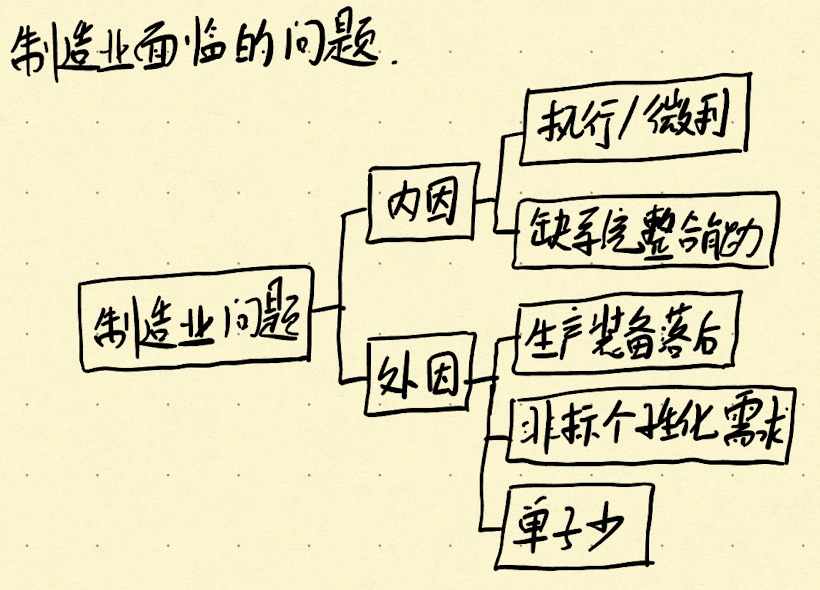 制造业面临的问题.
制造业问题
内因
执行/微利
缺系统整合能力
外因
生产装备落后
非标个性化需求
单子少